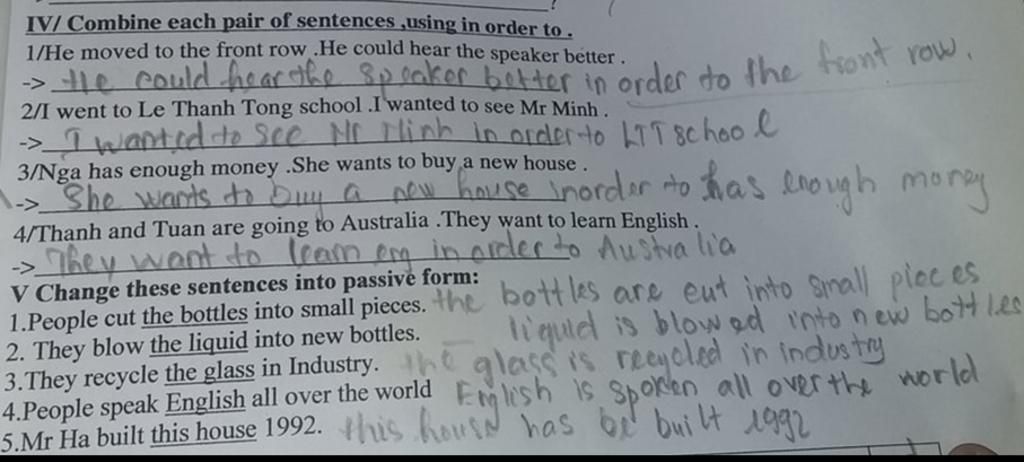 IV/ Combine each pair of sentences ,using in order to .
1/He moved to the front row .He could hear the speaker better .
-> He could hear the speaker better in order to the front row.
2/I went to Le Thanh Tong school .I wanted to see Mr Minh .
-> I wanted to see Mr Minh in order to LTT school
3/Nga has enough money .She wants to buy a new house .
-> She wants to buy a new house inorder to has enough money
4/Thanh and Tuan are going to Australia .They want to learn English .
-> They want to learn eng in order to Australia
V Change these sentences into passive form:
1.People cut the bottles into small pieces. the bottles are cut into small pieces
2. They blow the liquid into new bottles. liquid is blowed into new bottles
3.They recycle the glass in Industry. the glass is recycled in industry
4.People speak English all over the world English is spoken all over the world
5.Mr Ha built this house 1992. this house has be built 1992